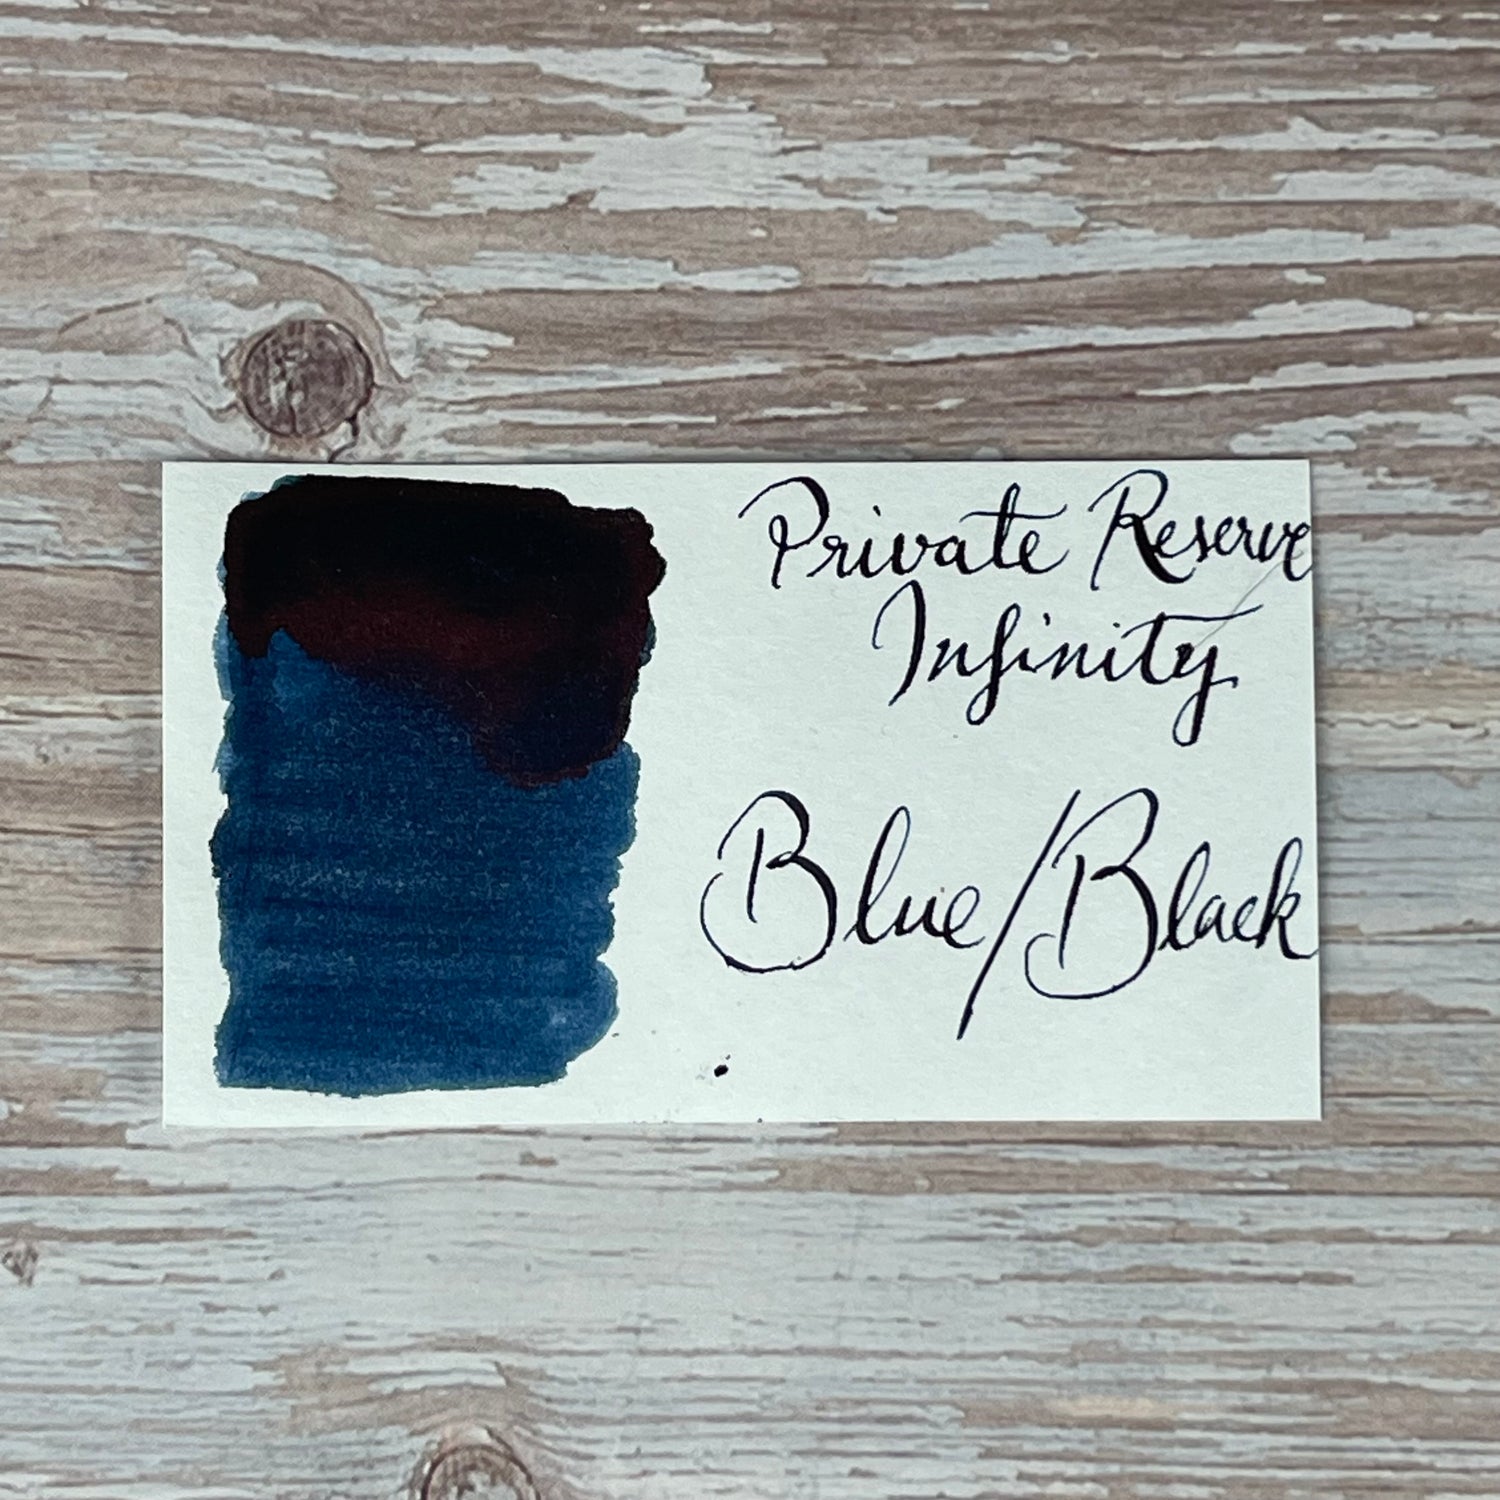 Private Reserve
Infinity
Blue/Black